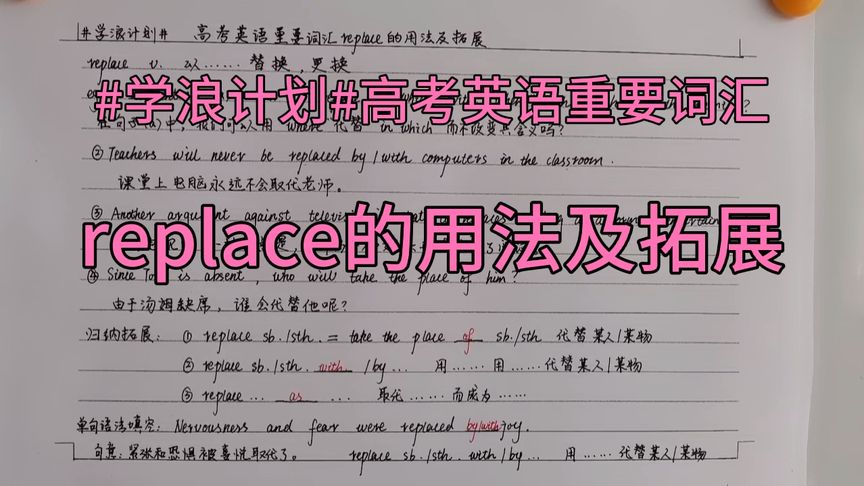 #学浪计划# 高考英语重要词汇replace的用法及拓展
replace v. 以……替换,更换
#学浪计划#高考英语重要词汇
在句子(a)中,我们可以用 where 代替 in which 而不改变其含义吗?
② Teachers will never be replaced by / with computers in the classroom.
课堂上电脑永远不会取代老师。
③ Another argument against
replace的用法及拓展
④ Since Tom is absent, who will take the place of him?
由于汤姆缺席,谁会代替他呢?
归纳拓展: ① replace sb./sth. = take the place of sb./sth 代替某人/某物
② replace sb./sth. with /by… 用……用……代替某人/某物
③ replace … as … 取代……而成为……
单句语法填空: Nervousness and fear were replaced by/with joy.
句意:紧张和恐惧被喜悦取代了。 replace sb./sth. with / by… 用……代替某人/某物